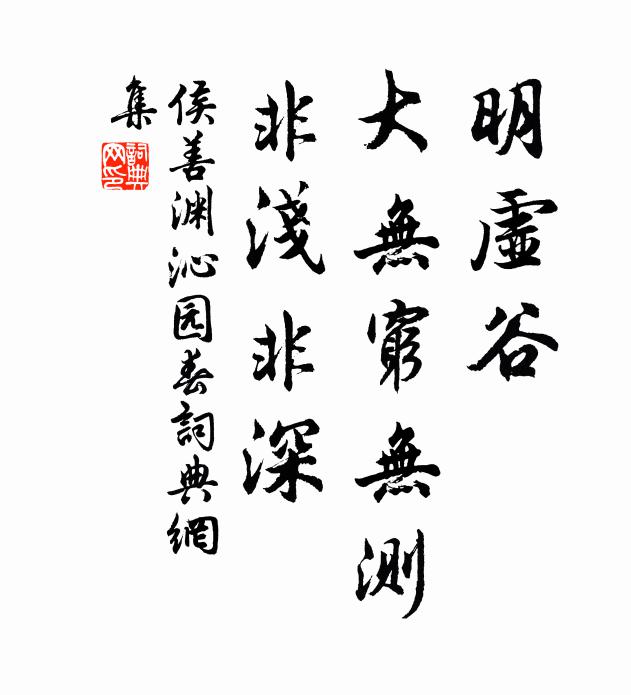 明虛谷
大無窮無測
非淺非深
侯善渊沁园春詞典網
集
詞典
网印